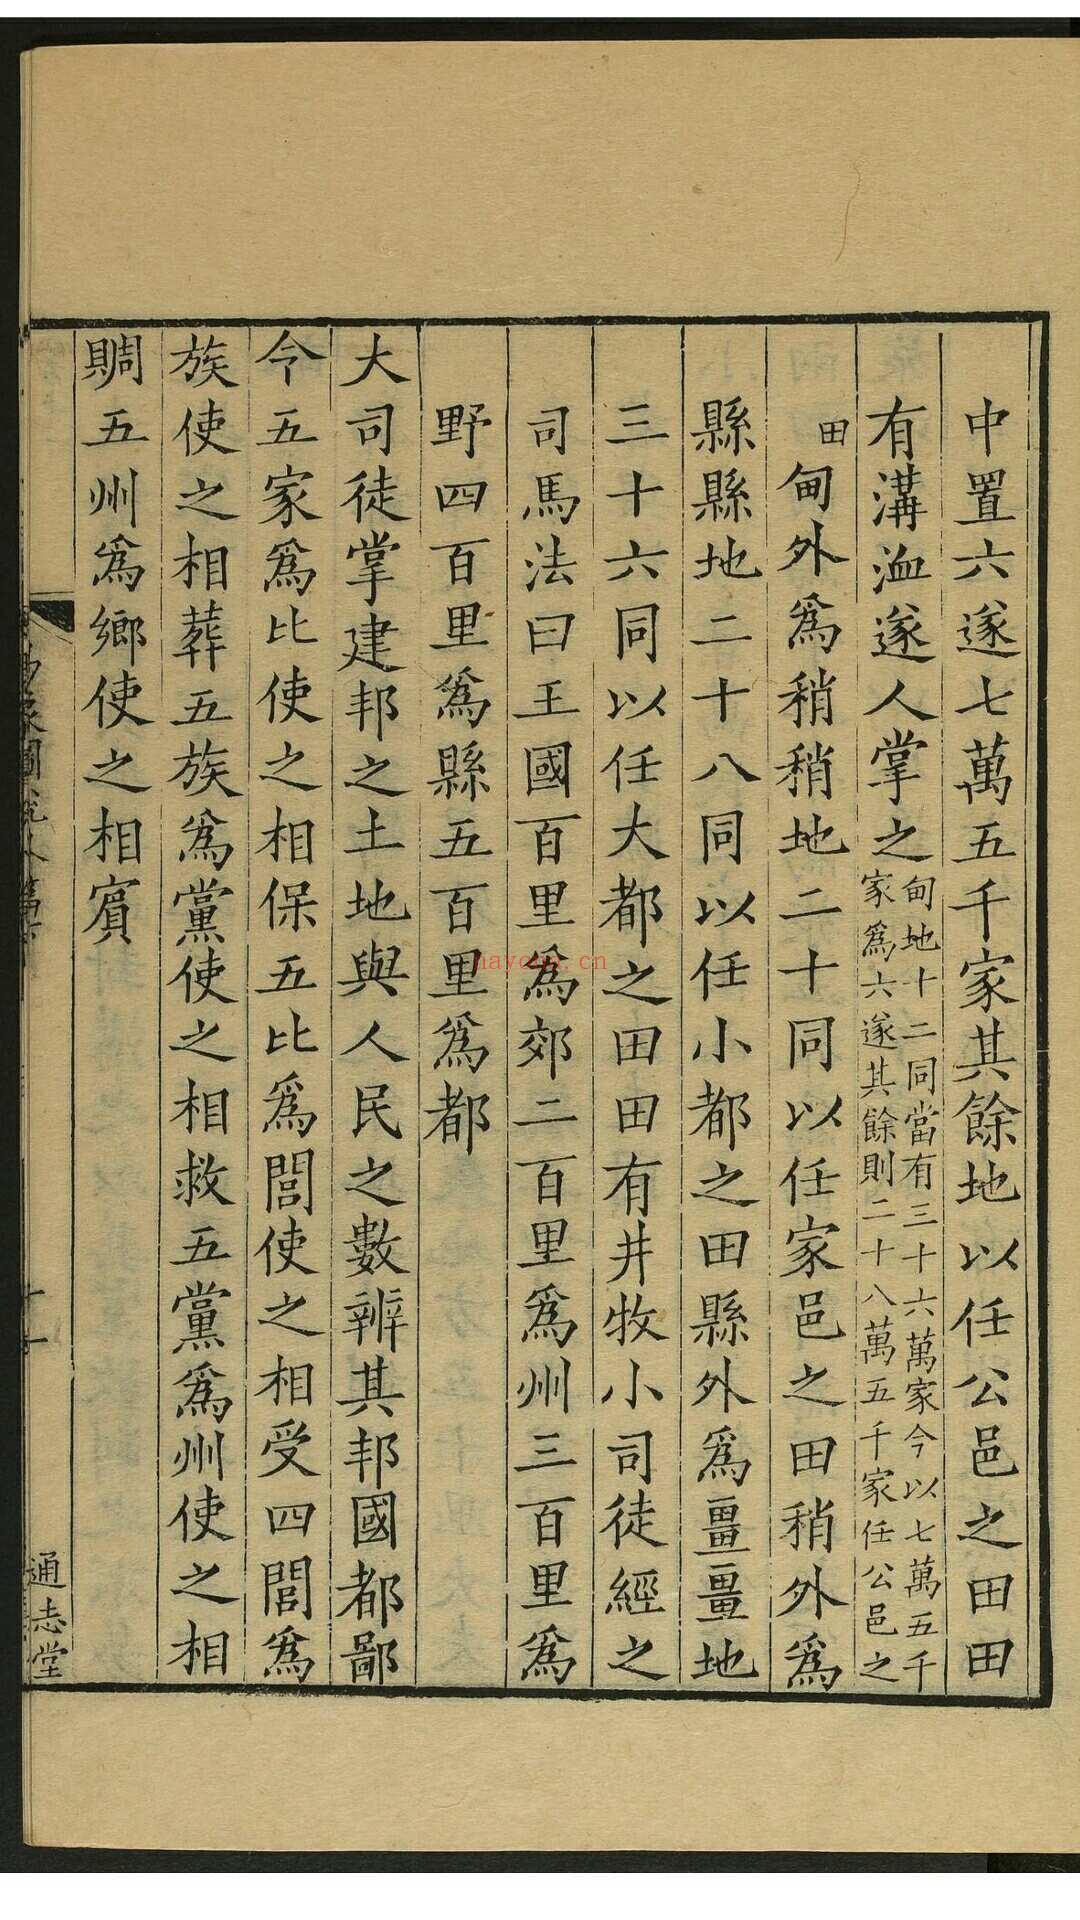 中置六遂七萬五千家其餘地以任公邑之田田
有溝洫遂人掌之甸地十二同當有三十六萬家今以七萬五千
家為六遂其餘則二十八萬五千家任公邑之
田甸外為稍稍地二十同以任家邑之田稍外為
縣縣地二十八同以任小都之田縣外為畺畺地
三十六同以任大都之田田有井牧小司徒經之
司馬法曰王國百里為郊二百里為州三百里為
野四百里為縣五百里為都
大司徒掌建邦之土地與人民之數辨其邦國都鄙
令五家為比使之相保五比為閭使之相受四閭為
族使之相葬五族為黨使之相救五黨為州使之相
賙五州為鄉使之相賓
通志堂